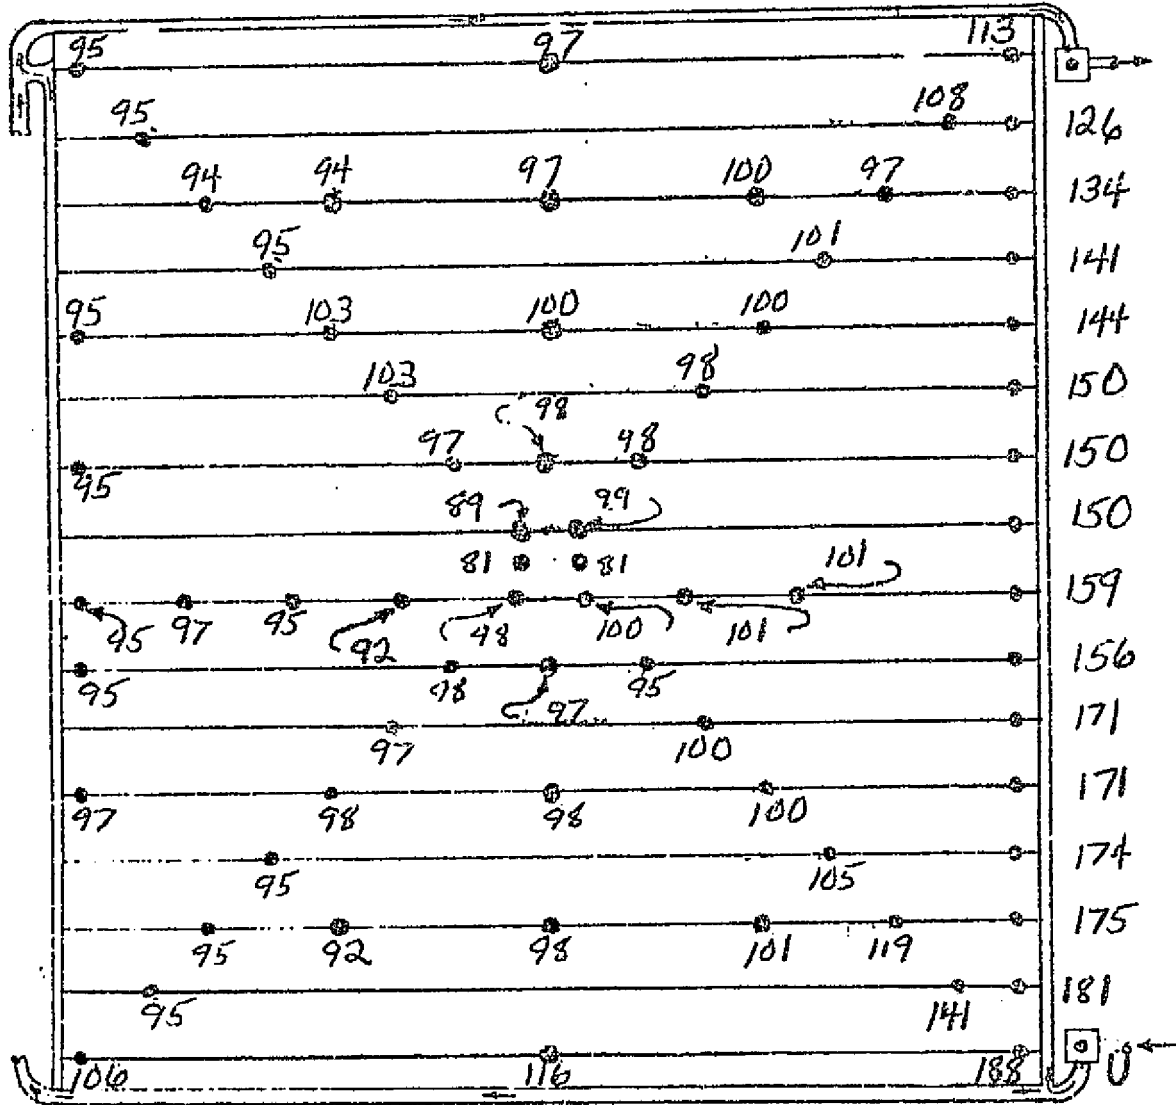 95 97 113
95 108 126
94 94 97 100 97 134
95 101 141
95 103 100 100 144
103 98 150
98
97 98 150
95
89 99 150
81 81 101
159
95 97 95 92 98 100 101
156
95 98 97 95
171
97 100
171
97 98 98 100
174
95 105
175
95 92 98 101 119
181
95 141
106 116 188